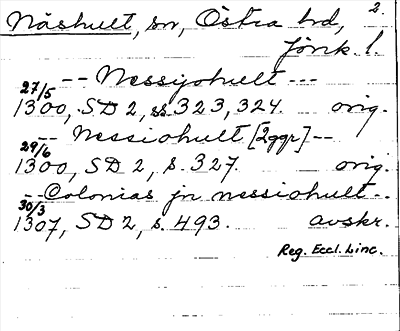 Näshult, sn, Östra hd, 2.
Jönk. l.
-- Nessiohult ---
27/5
1300, SD 2, ss. 323, 324. orig.
-- Nessiohult [2ggr] --
29/6
1300, SD 2, s. 327. orig.
-- Colonias jn nessiohult --
30/3
1307, SD 2, s. 493. avskr.
Reg. Eccl. Linc.